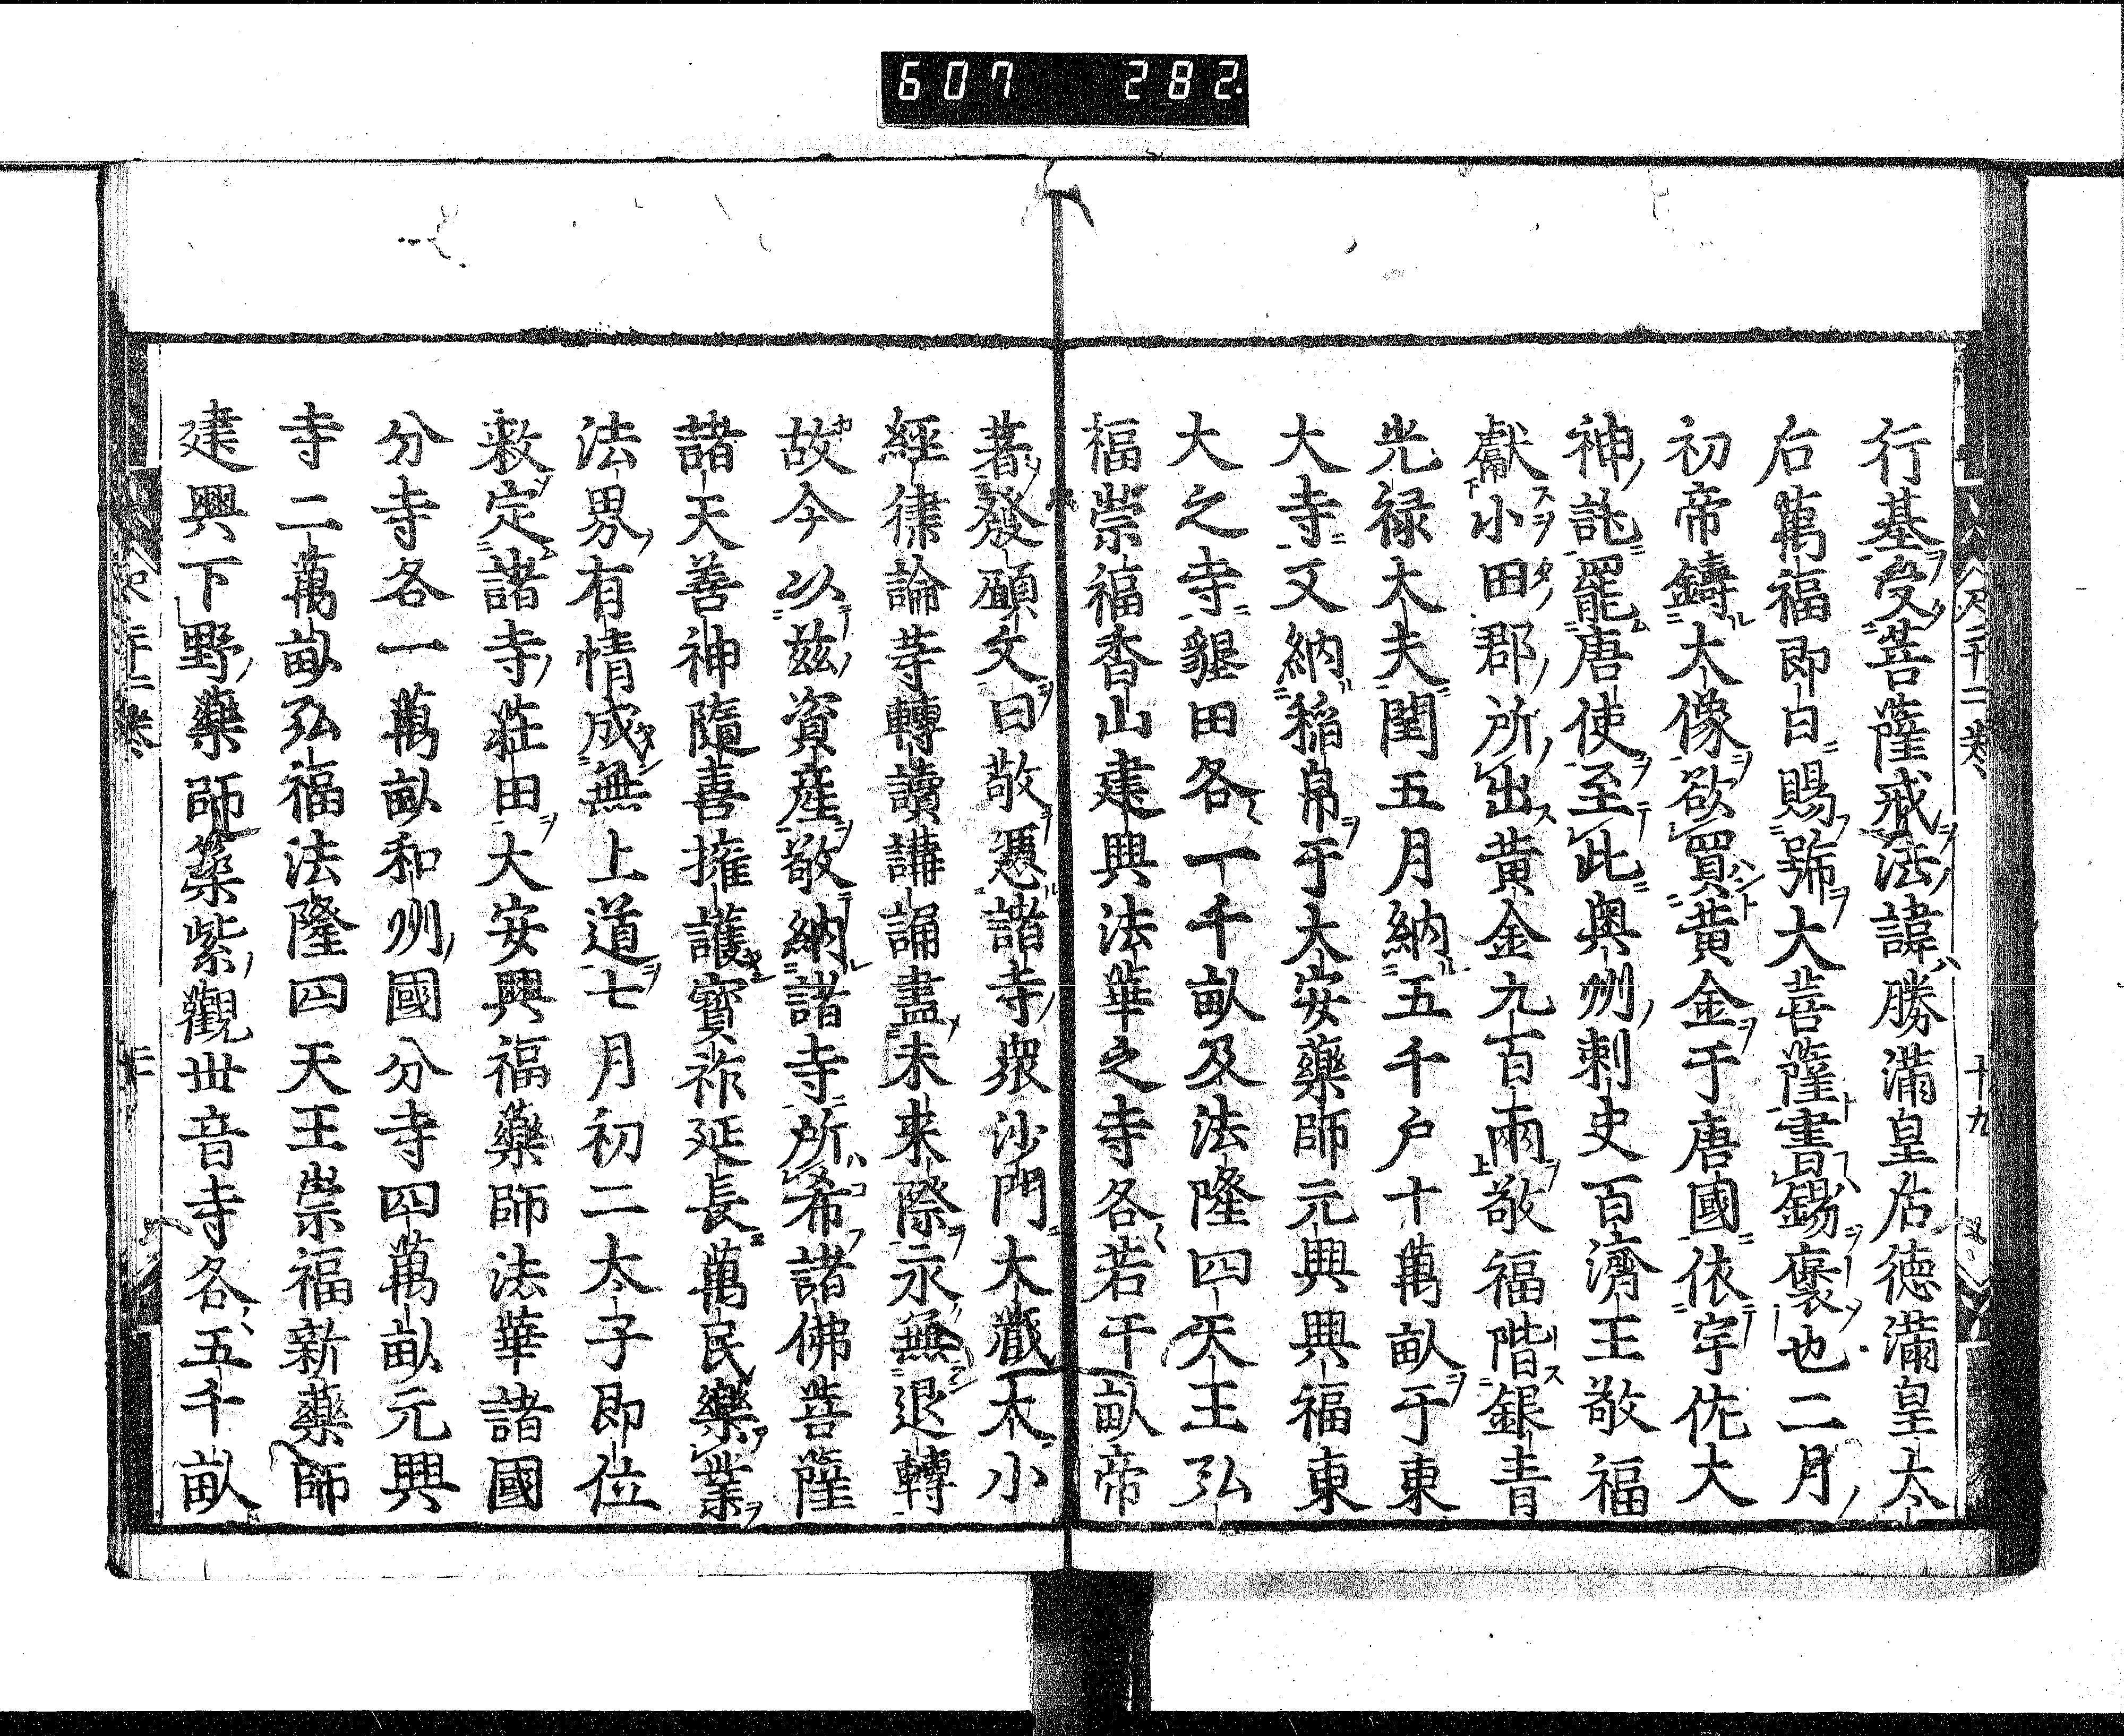 607 282.
行基受菩薩戒法諱勝滿皇后德滿皇太
后萬福即日賜號大菩薩書錫褒也二月
初帝鑄大像欲買黃金于唐國依宇佐大
神託罷唐使至此奧州刺史百濟王敬福
獻小田郡所出黃金九百兩敬福階銀青
光祿大夫閏五月納五千戶十萬畝于東
大寺又納稻帛于大安藥師元興興福東
大之寺墾田各一千畝及法隆四天王弘
福崇福香山建興法華之寺各若干畝帝
著發願文曰敬憑諸寺衆沙門大藏大小
經律論等轉讀講誦盡未來際永無退轉
故今以茲資產敬納諸寺所希諸佛菩薩
諸天善神隨喜擁護寶祚延長萬民樂業
法界有情成無上道七月初二太子即位
敕定諸寺莊田大安興福藥師法華諸國
分寺各一萬畝和州國分寺四萬畝元興
寺二萬畝弘福法隆四天王崇福新藥師
建興下野藥師築紫觀世音寺各五千畝
二十二卷
十九